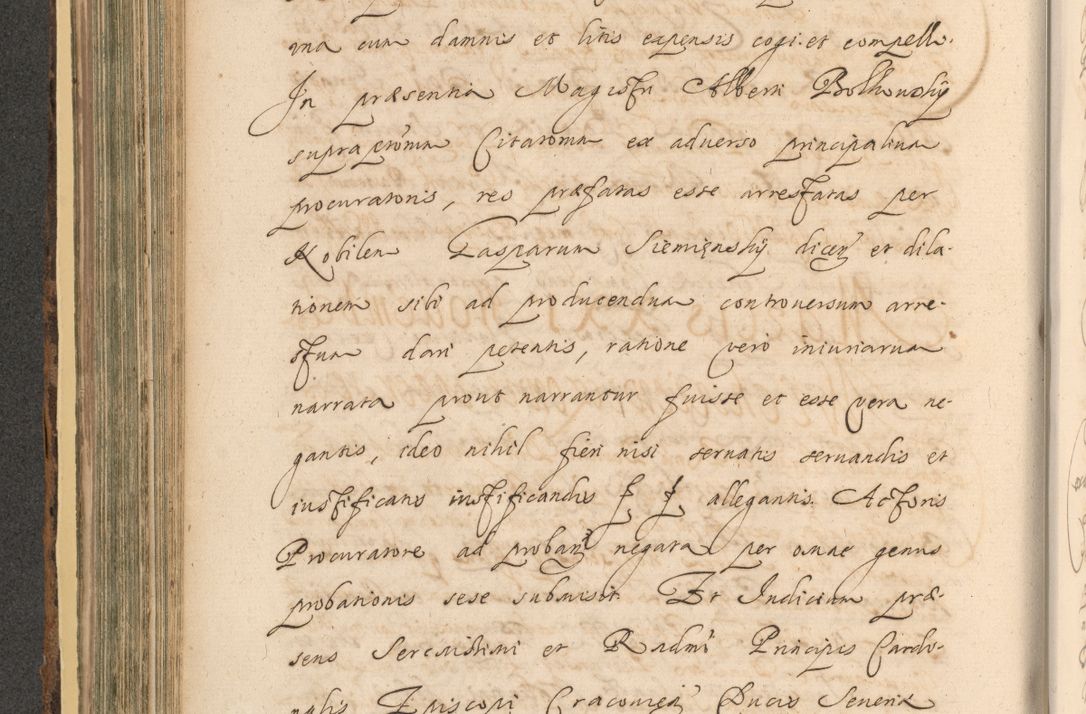 ma cum damnis et litis expensis cogi et compelle.
In præsentia Magistri Alberti Bolkowskÿ
supra Citatorum ex aduerso principalium
procuratoris, reo præfatas esse arrestatas per
Nobilem Gasparum Siemięnskÿ dicen et dila
tionem sibi ad producendum controuersum arre-
stum dari petentis, ratione vero iniuriarum
narrata prout narrantur fuisse et esse vera ne-
gantis, ideo nihil fieri nisi seruatis seruandis et
iustificatis iustificandis allegantis. Actoris
Procuratore ad proban negata per omne genus
probationis sese submisit. Et Iudicium præ-
sens Serenissimi et Radmi Principis Cardi-
nalis Episcopi Cracouien Ducis Seueriæ